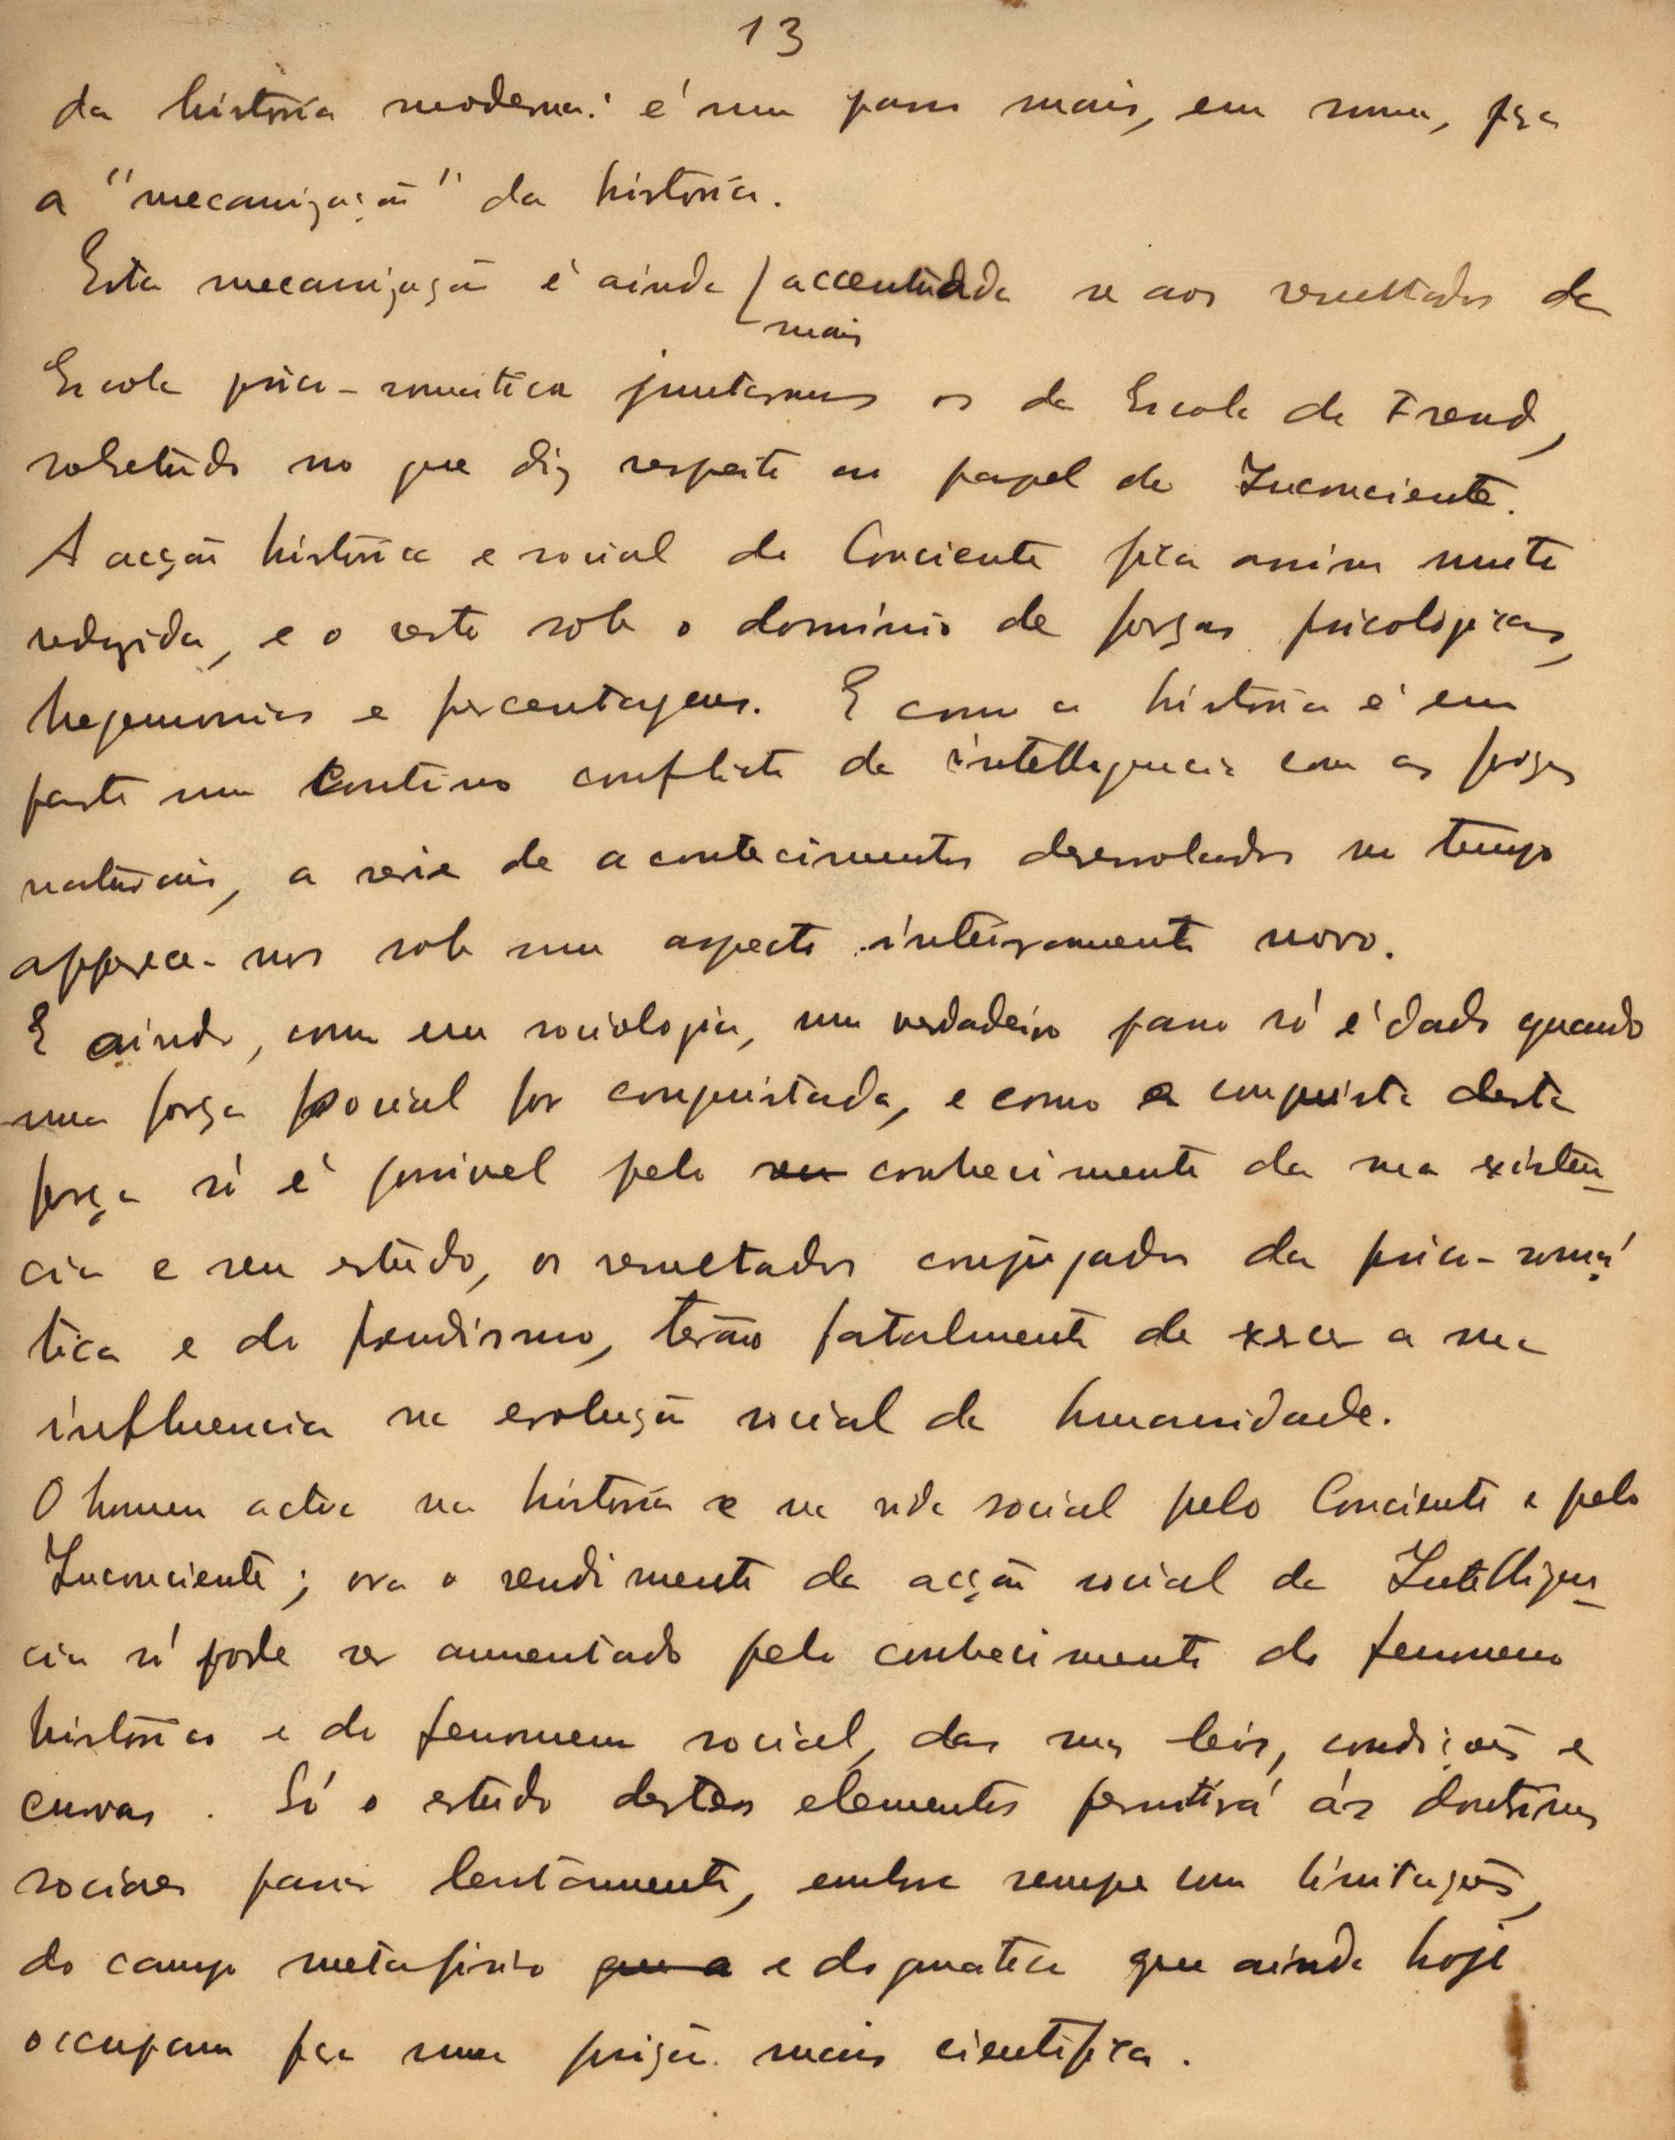 13
da história moderna: é um passo mais, em suma, pra
a "mecanização" da história.
Esta mecanização é ainda / accentuada se aos resultados da
mais
Escola psico-somatica juntarmos os da Escola de Freud,
sobretudo no que diz respeito ao papel do Inconciente.
A acção histórica e social do Conciente fica assim muito
reduzida, e o resto sob o dominio de forças psicologicas,
hegemonias e percentagens. E como a história é em
parte um contino conflicto da intelligencia com as forças
naturais, a serie de acontecimentos desenrolados no tempo
apparece-nos sob um aspecto inteiramente novo.
E ainda, como em sociologia, um verdadeiro passo só é dado quando
uma força social for conquistada, e como a conquista desta
força só é possivel pelo seu conhecimento da sua existen-
cia e seu estudo, os resultados conjugados da psico-somá-
tica e do freudismo, terão fatalmente de excer a sua
influencia na evolução social da humanidade.
O homem actua na história e na vida social pelo Conciente e pelo
Inconciente; ora o rendimento da acção social da Intelligen-
cia só pode ser aumentado pelo conhecimento do fenomeno
histórico e do fenomeno social, das suas leis, condições e
curvas. Só o estudo destes elementos permitirá ás doutrinas
sociaes passar lentamente, embora sempre com limitações,
do campo metafisico que a e dogmatico que ainda hoje
occupam pra uma posição mais cientifica.